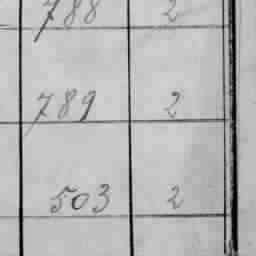 788 2
789 2
503 2